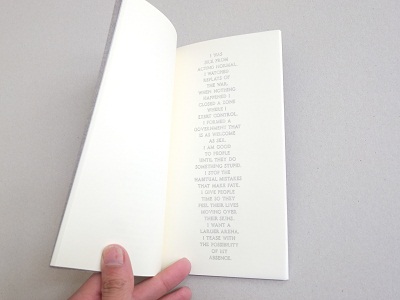 I WAS
SICK FROM
ACTING NORMAL.
I WATCHED
REPLAYS OF
THE WAR.
WHEN NOTHING
HAPPENED I
CLOSED A ZONE
WHERE I
EXERT CONTROL.
I FORMED A
GOVERNMENT THAT
IS AS WELCOME
AS SEX.
I AM GOOD
TO PEOPLE
UNTIL THEY DO
SOMETHING STUPID.
I STOP THE
HABITUAL MISTAKES
THAT MAKE FATE.
I GIVE PEOPLE
TIME SO THEY
FEEL THEIR LIVES
MOVING OVER
THEIR SKINS.
I WANT A
LARGER ARENA.
I TEASE WITH
THE POSSIBILITY
OF MY
ABSENCE.